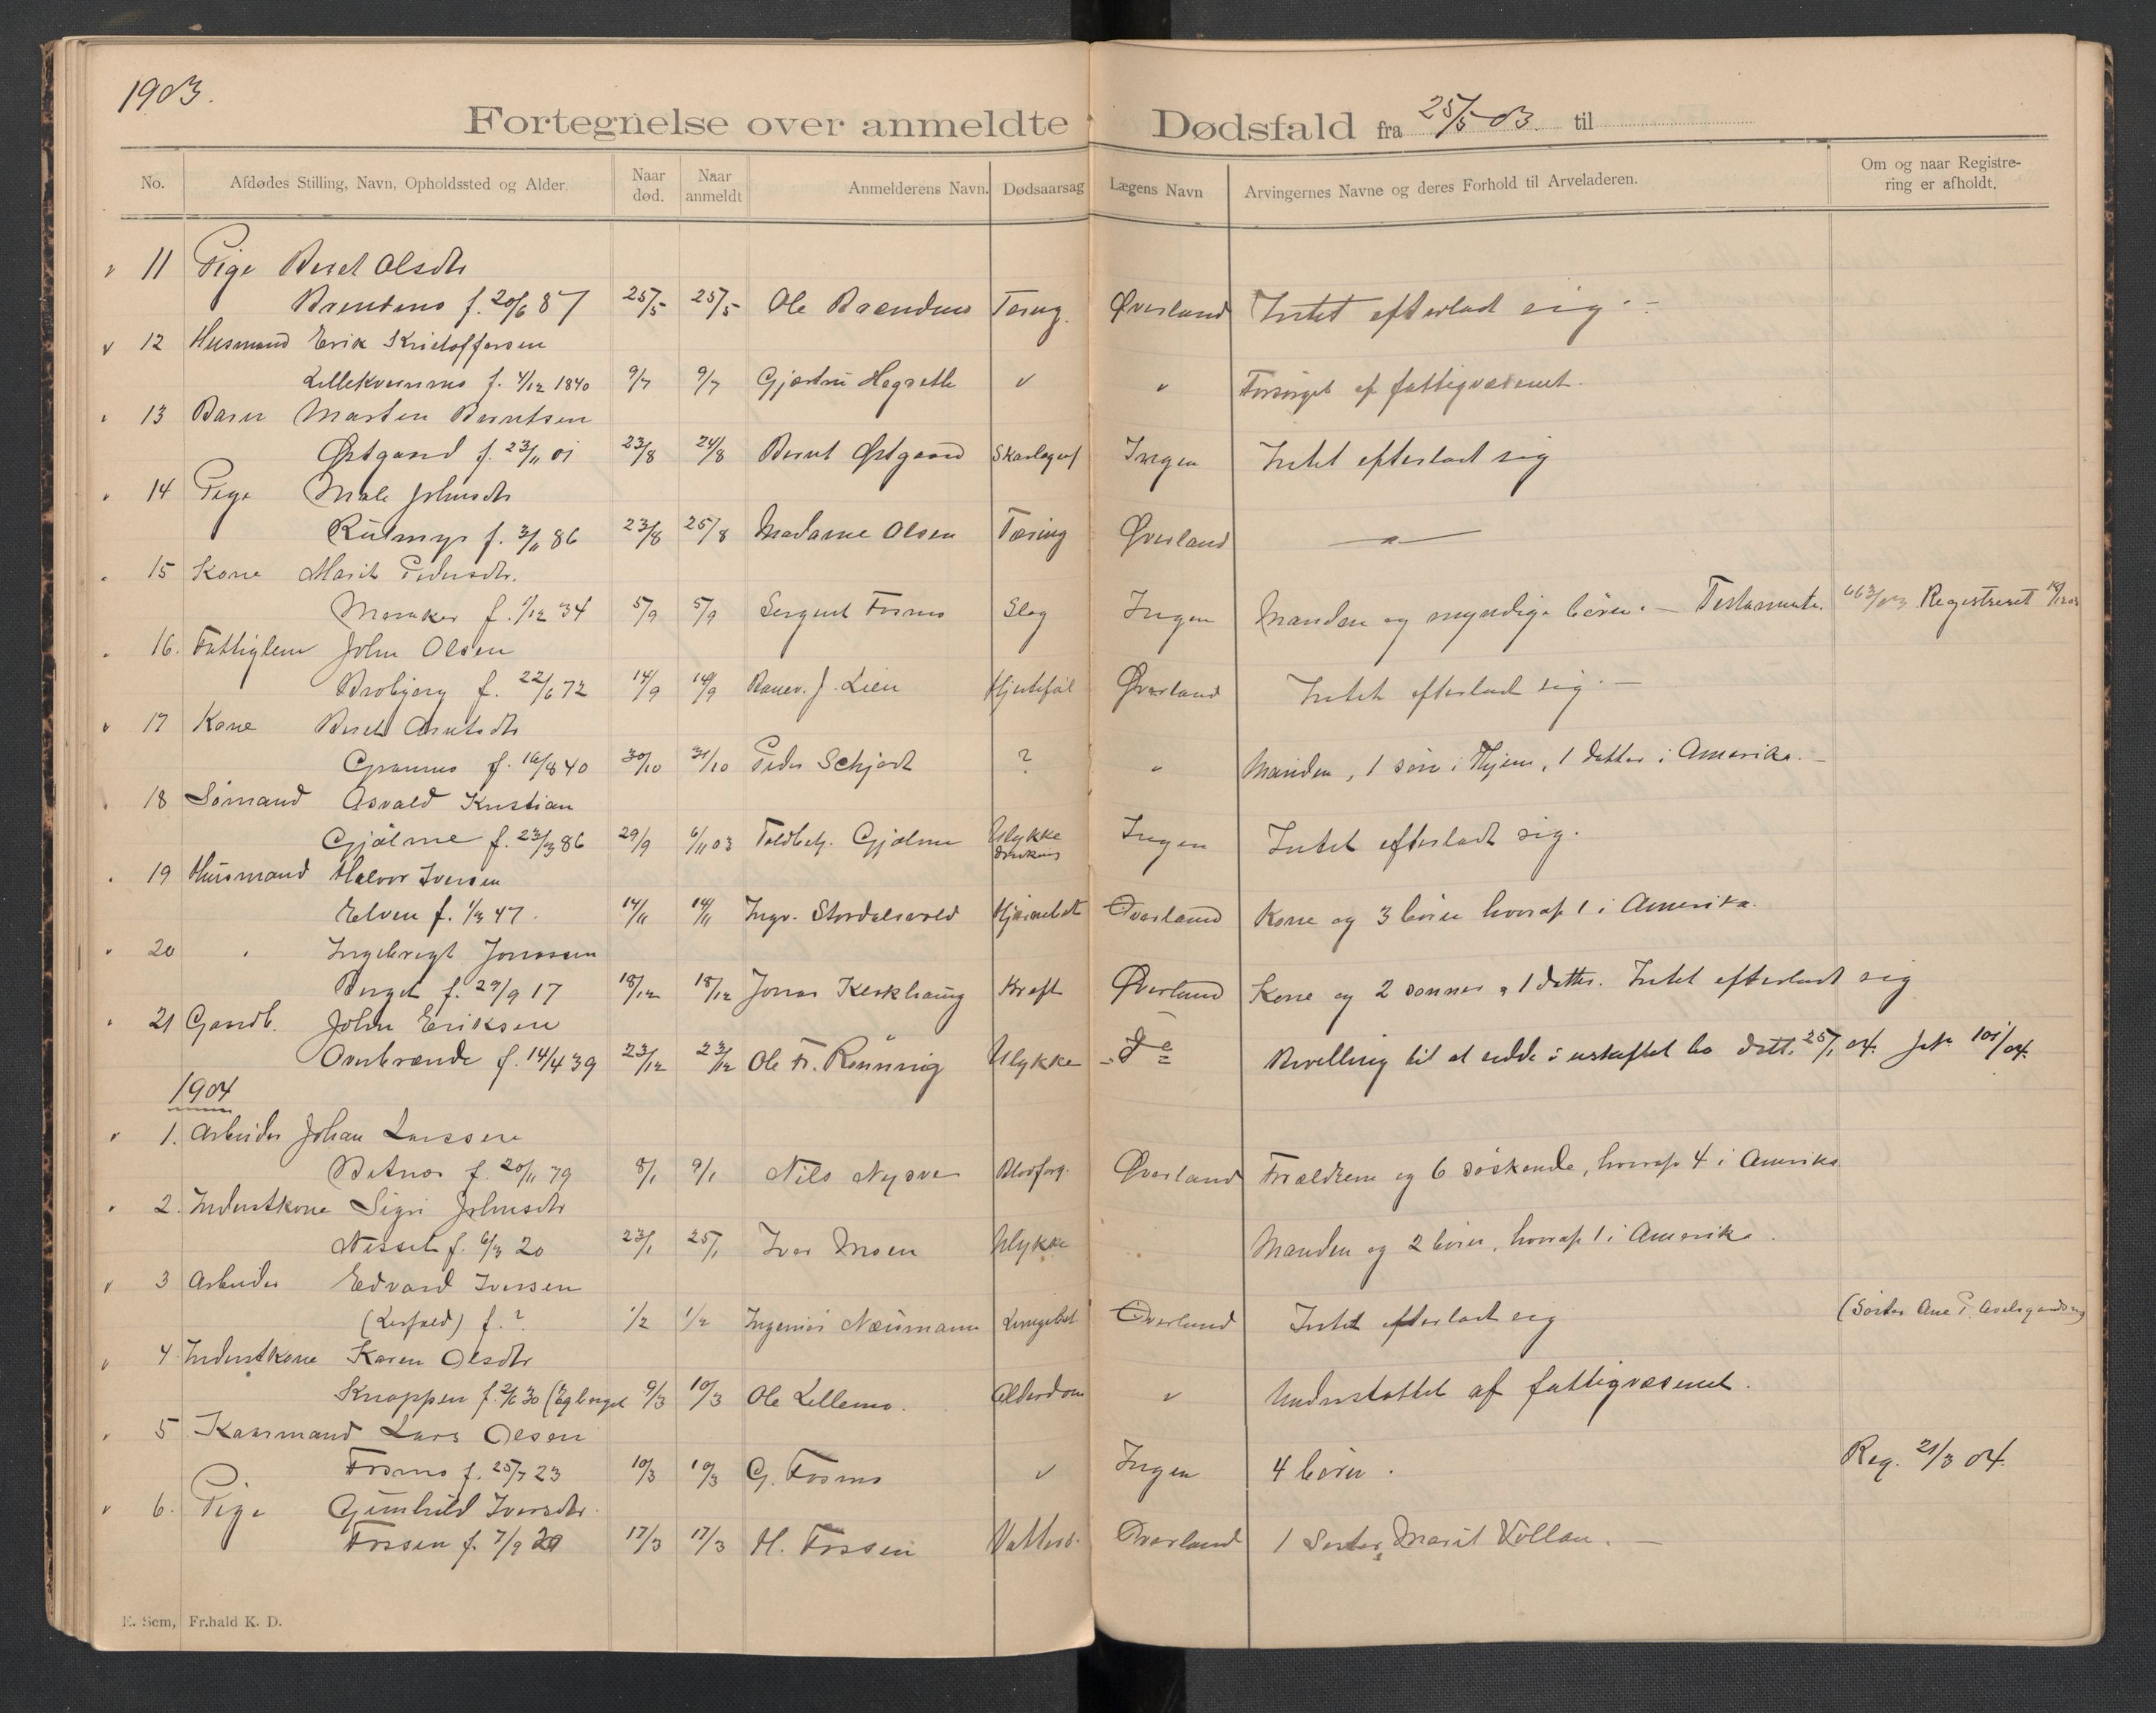 1903.
Fortegnelse over anmeldte Dødsfald fra 25/5 03. til
No. Afdødes Stilling, Navn, Opholdssted og Alder. Naar død. Naar anmeldt Anmelderens Navn. Dødsaarsag Lægens Navn Arvingernes Navne og deres Forhold til Arveladeren. Om og naar Registrering er afholdt.
11 Pige Beret Olsdtr
f. 20/6 87 25/5 25/5 Ole Brændmo Tæring. Øverland Intet efterladt sig. –
12 Husmand Erik Kristoffersen
f. 4/12 1840 9/7 9/7 Hegseth " " Forsørget af fattigvæsenet.
13 Barn Marten Berntsen
Østgaard f. 23/11 01 23/8 24/8 Bernt Østgaard Skarlagsf Ingen Intet efterladt sig
14 Pige Male Johnsdtr
f. 3/11 86 23/8 25/8 Madame Olsen Tæring Øverland — " —
15 Kone Marit Pedersdtr.
Meraker f. 1/12 34 5/9 5/9 Sergent Fosmo Slag Ingen Manden og myndige børn. – Testamente. Registreret
16. Fattiglem John Olsen
Brobjerg f. 22/6 72 14/9 14/9 J. Lien Hjertefeil Øverland Intet efterladt sig. –
17 Kone Beret Arntsdtr
f. 16/8 40 30/10 31/10 Peder Schjørt ? " Manden, 1 søn i Hjem, 1 datter i Amerika. –
18 Sømand Asvald Kristian
Gjølme f. 23/3 86 29/9 6/11 03 Toldbetj. Gjølme Ulykke Ingen Intet efterladt sig.
druknis
19 Husmand Halvor Iversen
Elven f. 1/3 47. 14/11 14/11 Ingv. Øverland Kone og 3 børn hvoraf 1 i Amerika.
20 " Ingebrigt Jonssen
Berget f. 29/9 17 18/12 18/12 Jonas Kirkhaug Kræft Øverland Kone og 2 sønner, 1 datter. Intet efterladt sig
21 Gaardb. John Eriksen
f. 14/4 39 23/12 23/12 Ole Fr. Rønning Ulykke – d° – Bevilling til at sidde i uskiftet bo dat. 25/1 04. 101/04.
1904
1. Arbeider Johan Larssen
f. 20/11 79 8/1 9/1 Nils Nysve Blodforg. Øverland Forældrene og 6 søskende, hvoraf 4 i Amerika
2. Inderstkone Sigri Johnsdtr
f. 6/3 20 23/1 25/1 Iver Moen Ulykke Manden og 2 børn, hvoraf 1 i Amerika.
3 Arbeider Edvard Iversen
f. ? 1/2 1/2 Ingeniør Neumann Øverland Intet efterladt sig (Søster Ane P.
4 Inderstkone Karen Olsdtr
Knoppen 9/3 10/3 Ole Lillemo. Alderdom " Understøttet af fattigvæsenet.
5 Kaarmand Lars Olsen
Fosmo f. 25/7 23 10/3 10/3 G. Fosmo " Ingen 4 børn. Reg. 21/3 04.
6. Pige Gunhild Iversdtr.
Fossen f. 7/9 20 17/3 17/3 H. Fossen Vatters. Øverland 1 Søster, Marit Vollan. –
E. Sem, Fr.hald K. D.